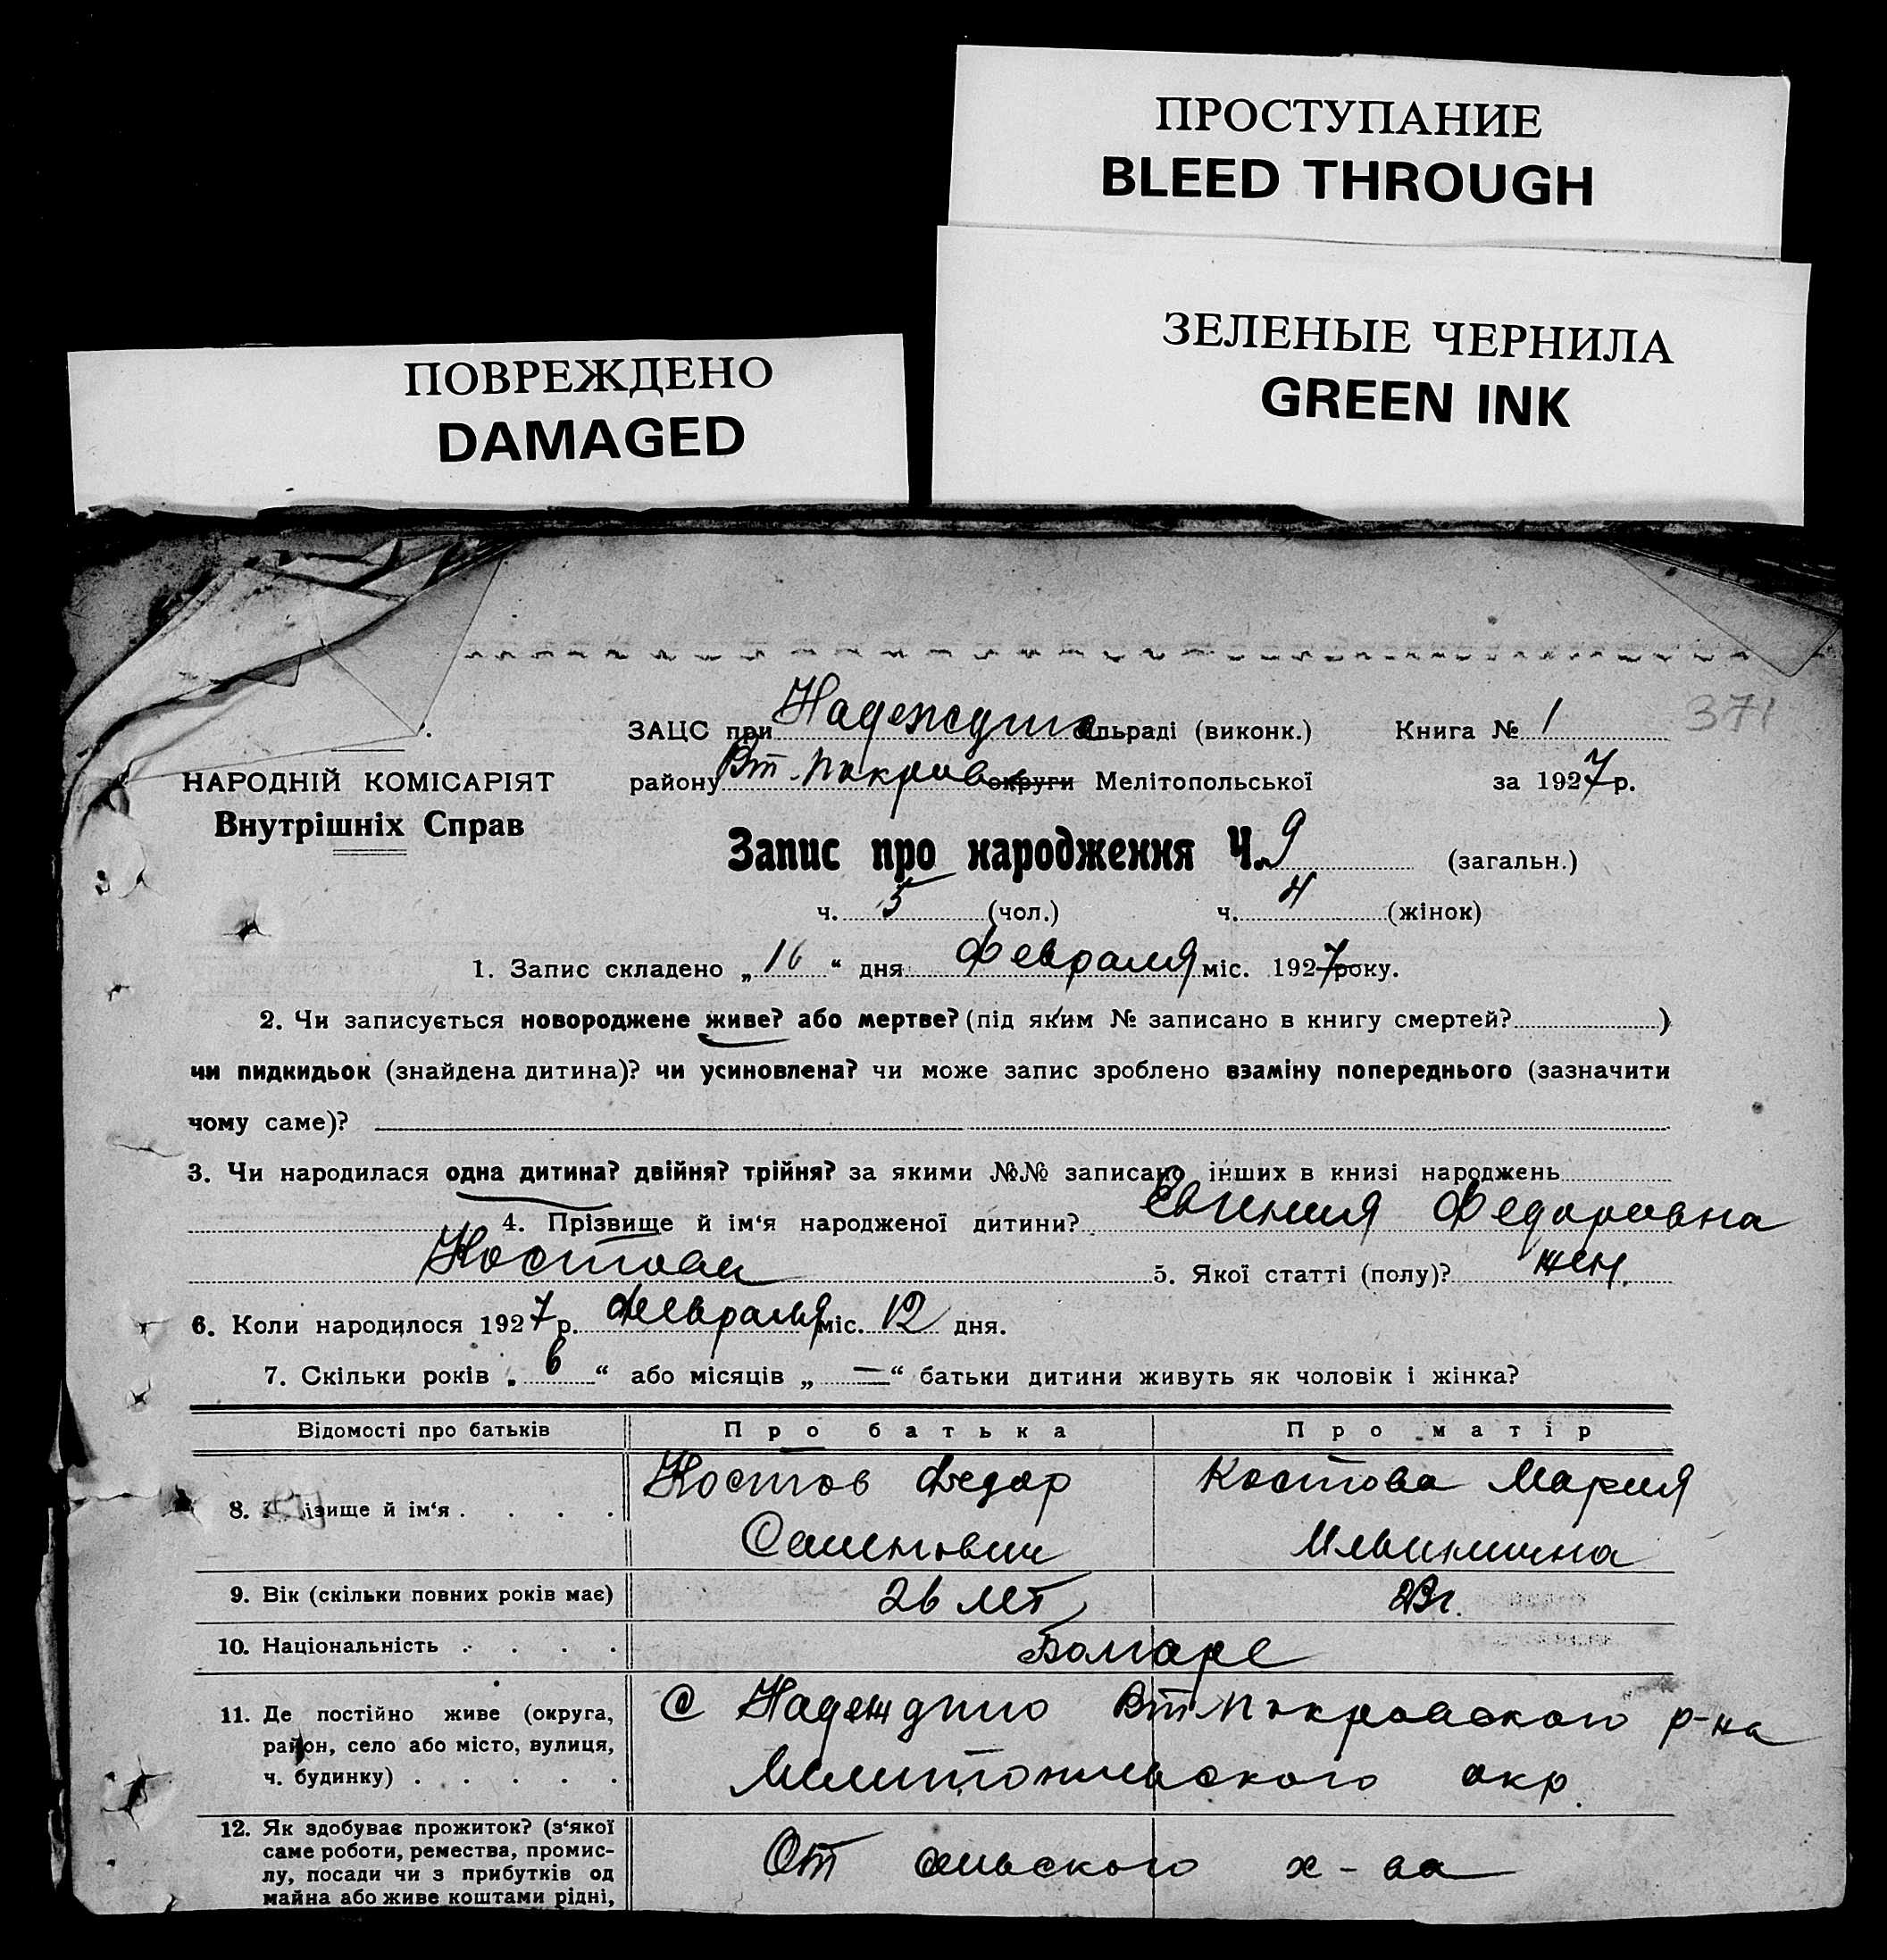 ПРОСТУПАНИЕ
BLEED THROUGH
ЗЕЛЕНЫЕ ЧЕРНИЛА
GREEN INK
ПОВРЕЖДЕНО
DAMAGED
371
ЗАЦС при Надеждинс ільраді (виконк.) Книга № 1
НАРОДНІЙ КОМІСАРІЯТ
району Вт-Покров округи Мелітопольської за 1927 р.
Внутрішніх Справ
Запис про народження Ч. 9 (загальн.)
ч. 5 (чол.) ч. 4 (жінок)
1. Запис складено „16“ дня Февраля міс. 1927 року.
2. Чи записується новороджене живе? або мертве? (під яким № записано в книгу смертей? )
чи пидкидьок (знайдена дитина)? чи усиновлена? чи може запис зроблено взаміну попереднього (зазначити
чому саме)?
3. Чи народилася одна дитина? двійня? трійня? за якими №№ записано інших в книзі народжень
4. Прізвище й ім‘я народженої дитини? Евгения Федоровна
Костова 5. Якої статті (полу)? жен.
6. Коли народилося 1927 р. Февраля міс. 12 дня.
7. Скільки років „ 6 “ або місяців „ — “ батьки дитини живуть як чоловік і жінка?
Відомості про батьків Про батька Про матір
8. ізвище й ім‘я . . . . Костов Федор Костова Мария
Семенович
9. Вік (скільки повних років має) 26 лет 23 г.
10. Національність . . . . Болгаре
11. Де постійно живе (округа, район, село або місто, вулиця, ч. будинку) . . . . . С Надеждино Вт Покровского р-на
Мелитопольского окр.
12. Як здобуває прожиток? (з‘якої саме роботи, ремества, промислу, посади чи з прибутків од майна або живе коштами рідні, От сельского х-ва